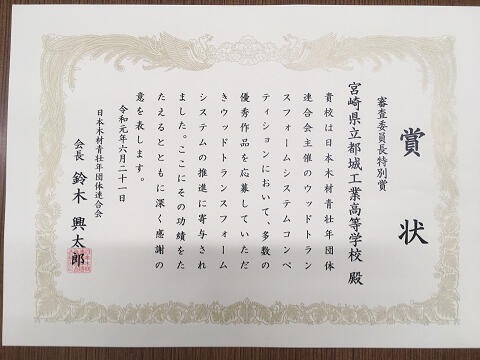 賞状
審査委員長特別賞
宮崎県立都城工業高等学校 殿
貴校は日本木材青壮年団体
連合会主催のウッドトラン
スフォームシステムコンペ
ティションにおいて、多数の
優秀作品を応募していただ
きウッドトランスフォーム
システムの推進に寄与され
ました。ここにその功績をた
たえるとともに深く感謝の
意を表します。
令和元年六月二十一日
日本木材青壮年団体連合会
会長 鈴木 興太郎